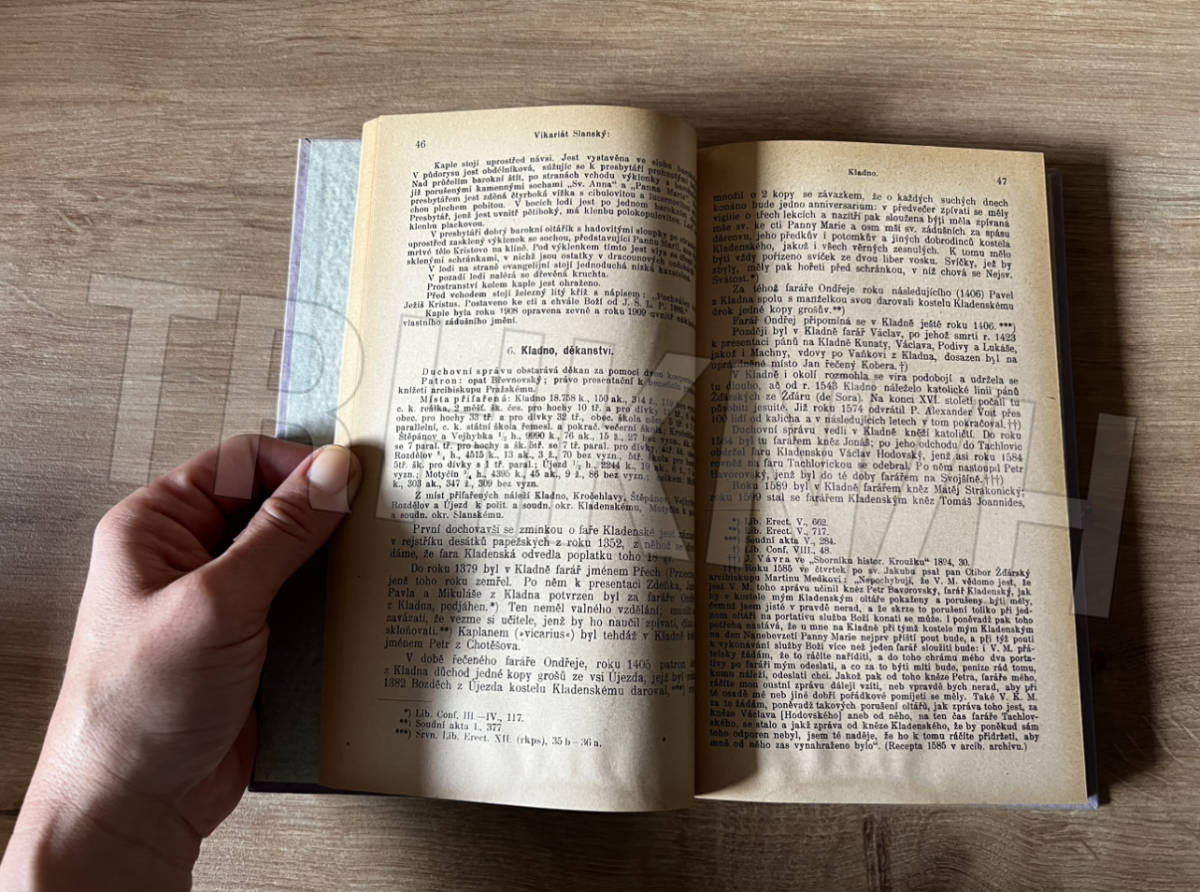 46
Vikariát Slanský:
Kaple stojí uprostřed návsi. Jest vystavěna ve slohu
V půdorysu jest obdélníková, súžujíc se k presbytáři
Nad průčelím barokní štít, po stranách vchodu výklenky s
již porušenými kamennými sochami „Sv. Anna" a „Panna Maria"
presbytářem jest zděná čtyrboká vížka s cibulovitou
chou plechem pobitou. V bocích lodi jest po jednom barokním
Presbytář, jenž jest uvnitř pětiboký, má klenbu polokopulovitou.
klenbu plackovou.
V presbytáři dobrý barokní oltářík s hadovitými sloupky po
uprostřed zasklený výklenek se sochou, představující Pannu Marii,
mrtvé tělo Kristovo na klíně. Pod výklenkem tímto jest
sklenými schránkami, v nichž jsou ostatky v
V lodi na straně evangelijní stojí jednoduchá nízká
V pozadí lodi nalézá se dřevěná kruchta.
Prostranství kolem kaple jest ohraženo.
Před vchodem stojí železný litý kříž s nápisem: „Pochválen
Ježíš Kristus. Postaveno ke cti a chvále Boží od J. S. L. P.
Kaple byla roku 1908 opravena zevně a roku 1909 uvnitř
vlastního zádušního jmění.
6. Kladno, děkanství.
Duchovní správu obstarává děkan za pomoci dvou
Patron: opat Břevnovský; právo presentační k beneficiu
knížeti arcibiskupu Pražskému.
Místa přifařená: Kladno 18.758 k., 150 ak., 314 ž.,
c. k. reálka, 2 měšť. šk. čes. pro hochy 10 tř. a pro dívky
obec. pro hochy 33 tř. a pro dívky 32 tř., obec. škola něm.
parallelní, c. k. státní škola řemesl. a pokrač. večerní škola;
Štěpánov a Vejhybka ½ h., 9990 k., 76 ak., 15 ž., 27 bez vyzn.
se 7 paral. tř. pro hochy a šk. 5tř. se 7 tř. paral. pro dívky,
Rozdělov ¾ h., 4515 k., 13 ak., 3 ž., 70 bez vyzn.
5tř. šk. pro dívky s 1 tř. paral.; Újezd ½ h., 2244 k., 19 ak.,
vyzn.; Motyčín ¾ h., 4395 k., 45 ak., 9 ž., 86 bez vyzn.;
k., 303 ak., 347 ž., 309 bez vyzn.
Z míst přifařených náleží Kladno, Kročehlavy, Štěpánov,
Rozdělov a Újezd k polit. a soudn. okr. Kladenskému, Motyčín k
a soudn. okr. Slanskému.
První dochovavší se zmínkou o faře Kladenské jest
v rejstříku desátků papežských z roku 1352, z něhož se
dáme, že fara Kladenská odvedla poplatku toho 18
Do roku 1379 byl v Kladně farář jménem Přech
jenž toho roku zemřel. Po něm k presentaci Zdeňka,
Pavla a Mikuláše z Kladna potvrzen byl za faráře
z Kladna, podjáhen.*) Ten neměl valného vzdělání;
zavázati, že vezme si učitele, jenž by ho naučil zpívati,
skloňovati.**) Kaplanem (»vicarius«) byl tehdáž v Kladně
jménem Petr z Chotěšova.
V době řečeného faráře Ondřeje, roku 1405 patron
z Kladna důchod jedné kopy grošů ze vsi Újezda, jejž byl
1382 Bozděch z Újezda kostelu Kladenskému daroval,***)
*) Lib. Conf. III.—IV., 117.
**) Soudní akta I., 377.
***) Srvn. Lib. Erect. XII. (rkps), 35 b—36 a.
Kladno.
47
množil o 2 kopy se závazkem, že o každých suchých dnech
konáno bude jedno anniversarium: v předvečer zpívati se měly
vigilie o třech lekcích a nazítří pak sloužena býti měla zpívaná
mše sv. ke cti Panny Marie a osm mší sv. zádušních za spásu
dárcovu, jeho předků i potomků a jiných dobrodinců kostela
Kladenského, jakož i všech věrných zesnulých. K tomu mělo
býti vždy pořízeno svíček ze dvou liber vosku. Svíčky, jež by
zbyly, měly pak hořeti před schránkou, v níž chová se Nejsv.
Svátost.*)
Za téhož faráře Ondřeje roku následujícího (1406) Pavel
z Kladna spolu s manželkou svou darovali kostelu Kladenskému
úrok jedné kopy grošův.**)
Farář Ondřej připomíná se v Kladně ještě roku 1406.***)
Později byl v Kladně farář Václav, po jehož smrti r. 1423
k presentaci pánů na Kladně Kunaty, Václava, Podivy a Lukáše,
jakož i Machny, vdovy po Vaňkovi z Kladna, dosazen byl na
uprázdněné místo Jan řečený Kobera.†)
V Kladně i okolí rozmohla se víra podobojí a udržela se
tu dlouho, ač od r. 1543 Kladno náleželo katolické linii pánů
Žďárských ze Žďáru (de Sora). Na konci XVI. století počali tu
působiti jesuité. Již roku 1574 odvrátil P. Alexander Voit přes
100 lidí od kalicha a v následujících letech v tom pokračoval.††)
Duchovní správu vedli v Kladně kněží katoličtí. Do roku
1564 byl tu farářem kněz Jonáš; po jeho odchodu do Tachlovic
obdržel faru Kladenskou Václav Hodovský, jenž asi roku 1584
rovněž na faru Tachlovickou se odebral. Po něm nastoupil Petr
Bavorovský, jenž byl do té doby farářem na Svojšíně.†††)
Roku 1589 byl v Kladně farářem kněz Matěj Strakonický;
roku 1599 stal se farářem Kladenským kněz Tomáš Joannides,
*) Lib. Erect. V., 662.
**) Lib. Erect. V., 717.
***) Soudní akta V., 284.
†) Lib. Conf. VIII., 48.
††) J. Vávra ve „Sborníku histor. Kroužku" 1894, 30.
†††) Roku 1585 ve čtvrtek po sv. Jakubu psal pan Ctibor Žďárský
arcibiskupu Martinu Medkovi: „Nepochybuji, že V. M. vědomo jest, že
jest V. M. toho zprávu učinil kněz Petr Bavorovský, farář Kladenský, jak
by v kostele mým Kladenském oltáře pokaženy a porušeny býti měly,
čemuž jsem jistě v pravdě nerad, a že skrze to porušení toliko při jed-
nom oltáři na portativu služba Boží konati se může. I poněvadž pak toho
potřeba nastává, že u mne na Kladně při týmž kostele mým Kladenským
na den Nanebevzetí Panny Marie nejprv příští pout bude, a při týž pouti
k vykonávání služby Boží více než jeden farář sloužiti bude: i V. M. přá-
telsky žádám, že to ráčíte naříditi, a do toho chrámu mého dva porta-
tivy po faráři mým odeslati, a co za to býti míti bude, peníze rád tomu,
komu náleží, odeslati chci. Jakož pak od toho kněze Petra, faráře mého,
ráčíte mou oustní zprávu dáleji vzíti, neb vpravdě bych nerad, aby při
té osadě mé neb jiné dobří pořádkové pomíjeti se měly. Také V. K. M.
za to žádám, poněvadž takových porušení oltářů, jak zpráva toho jest, za
kněze Václava [Hodovského] aneb od něho, na ten čas faráře Tachlov-
ského, se stalo a jakž zpráva od kněze Kladenského, že by poněkud sám
toho odporen nebyl, jsem té naděje, že ho k tomu ráčíte přidržeti, aby
mně od něho zas vynahraženo bylo". (Recepta 1585 v arcib. archivu.)